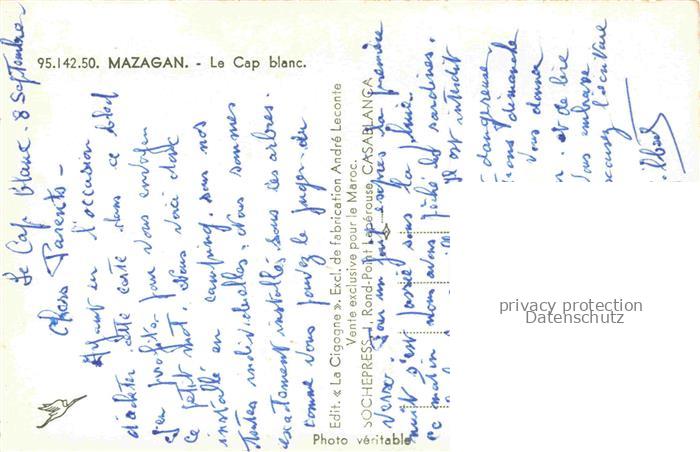 95.142.50. MAZAGAN. - Le Cap blanc.
Le Cap Blanc. 8 Septembre
Chers Parents -
Ayant eu l'occasion
d'acheter cette carte dans ce bled
j'en profite pour vous envoyer
ce petit mot. Nous voici donc
installé en camping. sous nos
toutes individuelles. Nous sommes
exactement installés sous les arbres.
comme vous pouvez le juger au
verso pour un jour la première
nuit s'est passée sous la pluie.
ce matin nous avons pêché les sardines.
Il est interdit
dangereuse
dimanche
vous donne
et de lire
vous embrasse
excusez l'écriture
Edit. « La Cigogne ». Excl. de fabrication André Leconte
Vente exclusive pour le Maroc.
SOCHEPRESS 1, Rond-Point Lapérouse, CASABLANCA
Photo véritable
privacy protection
Datenschutz